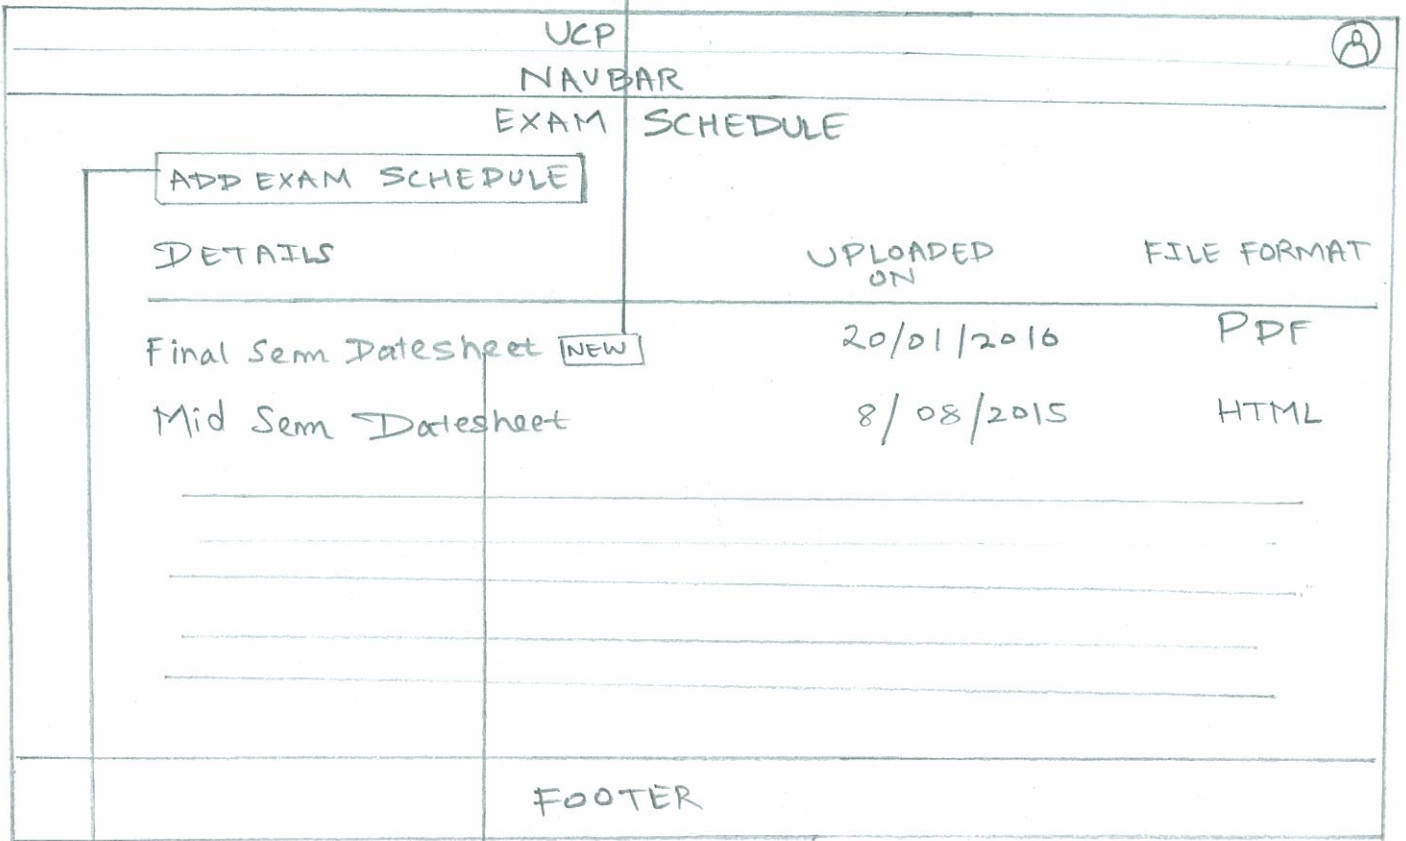 UCP
NAVBAR
EXAM SCHEDULE
ADD EXAM SCHEDULE
DETAILS UPLOADED ON FILE FORMAT
Final Sem Datesheet NEW 20/01/2016 PDF
Mid Sem Datesheet 8/08/2015 HTML
FOOTER